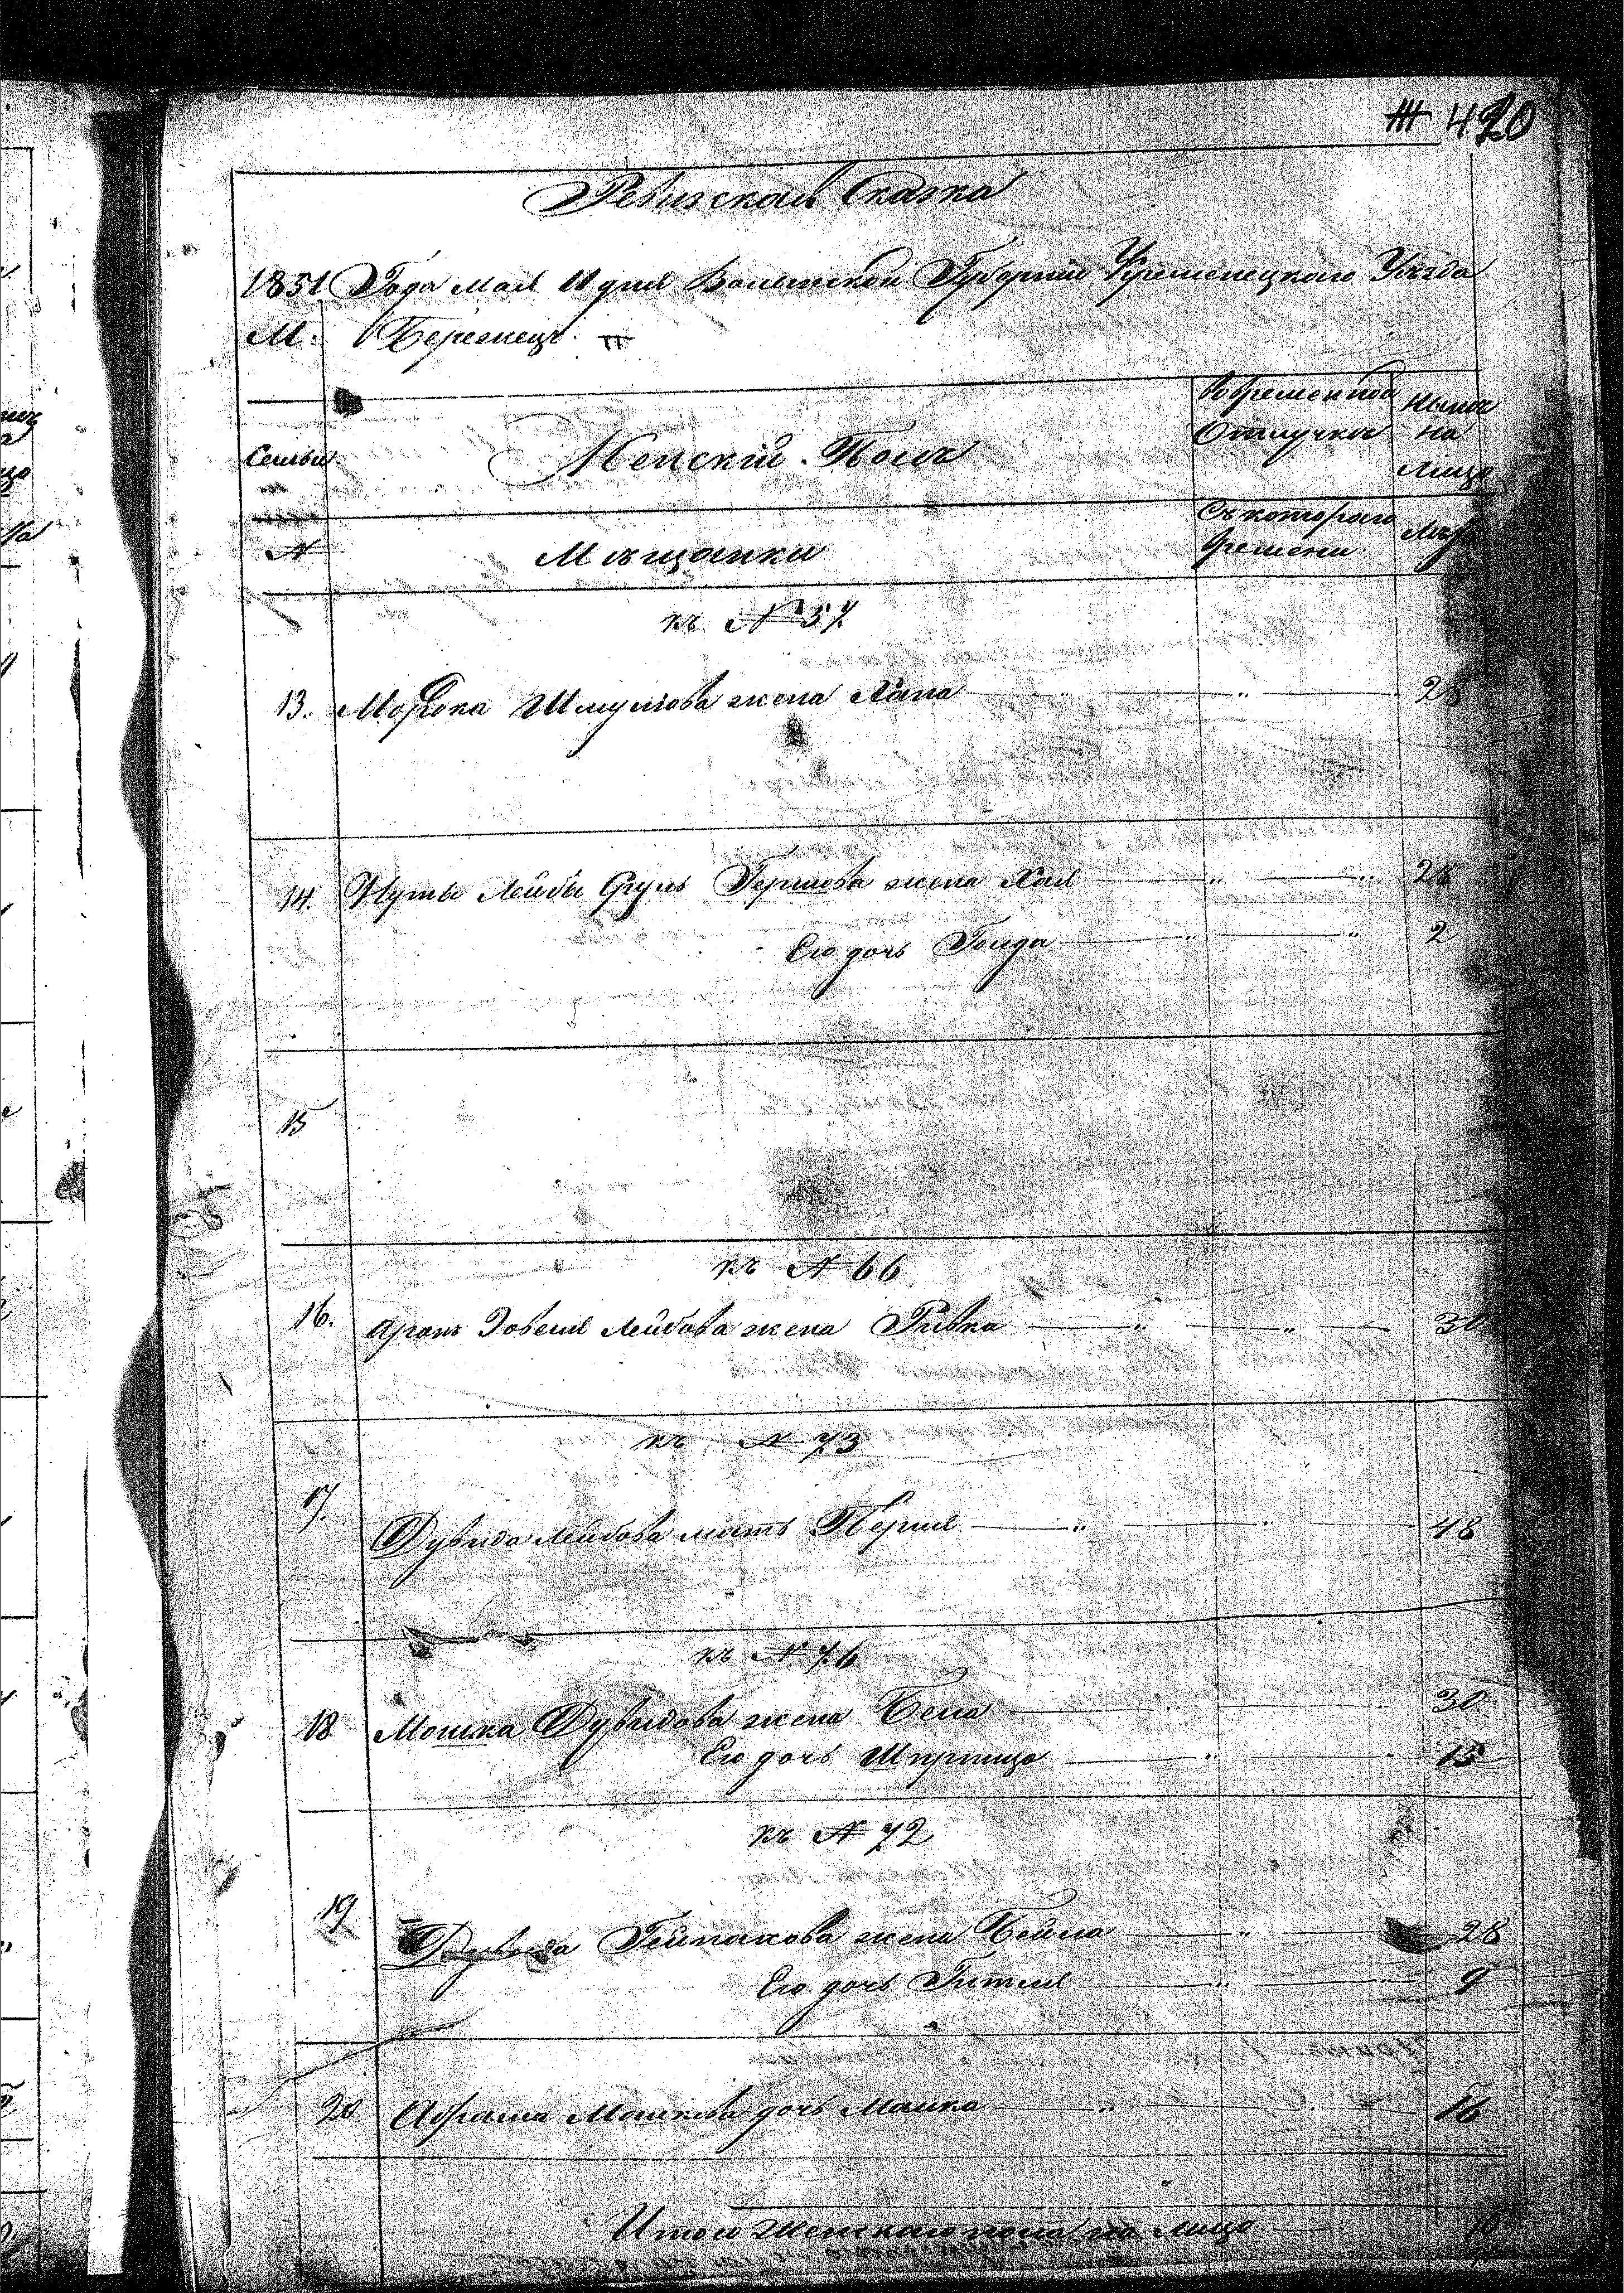 420
Ревизская Сказка
1851 Года мая 11 дня Волынской Губернии Кременецкого Уезда
М. Бережец
Семьи
Женский Полъ
Во временной Отлучке
Ныне на лицо
№
Мещанки
Съ которого времени
Лета
къ № 57
13. Мордка Шмулiова жена Хана 28
14. Нуты Лейбы Сруль Гершова жена Хая 28
Его дочь Голда 2
15
къ № 66
16. Аронъ Лейбова жена Ривка 30
къ № 73
17. Дувида Лейбова мать Перля 48
къ № 76
18 Мошка Дувидова жена Бела 30
Его дочь Шпринца 15
къ № 72
19 Дувида жена Бейла 28
Его дочь Гитля 9
20 Абрама Мошкова дочь Малка 16
Итого женского пола на лицо 10